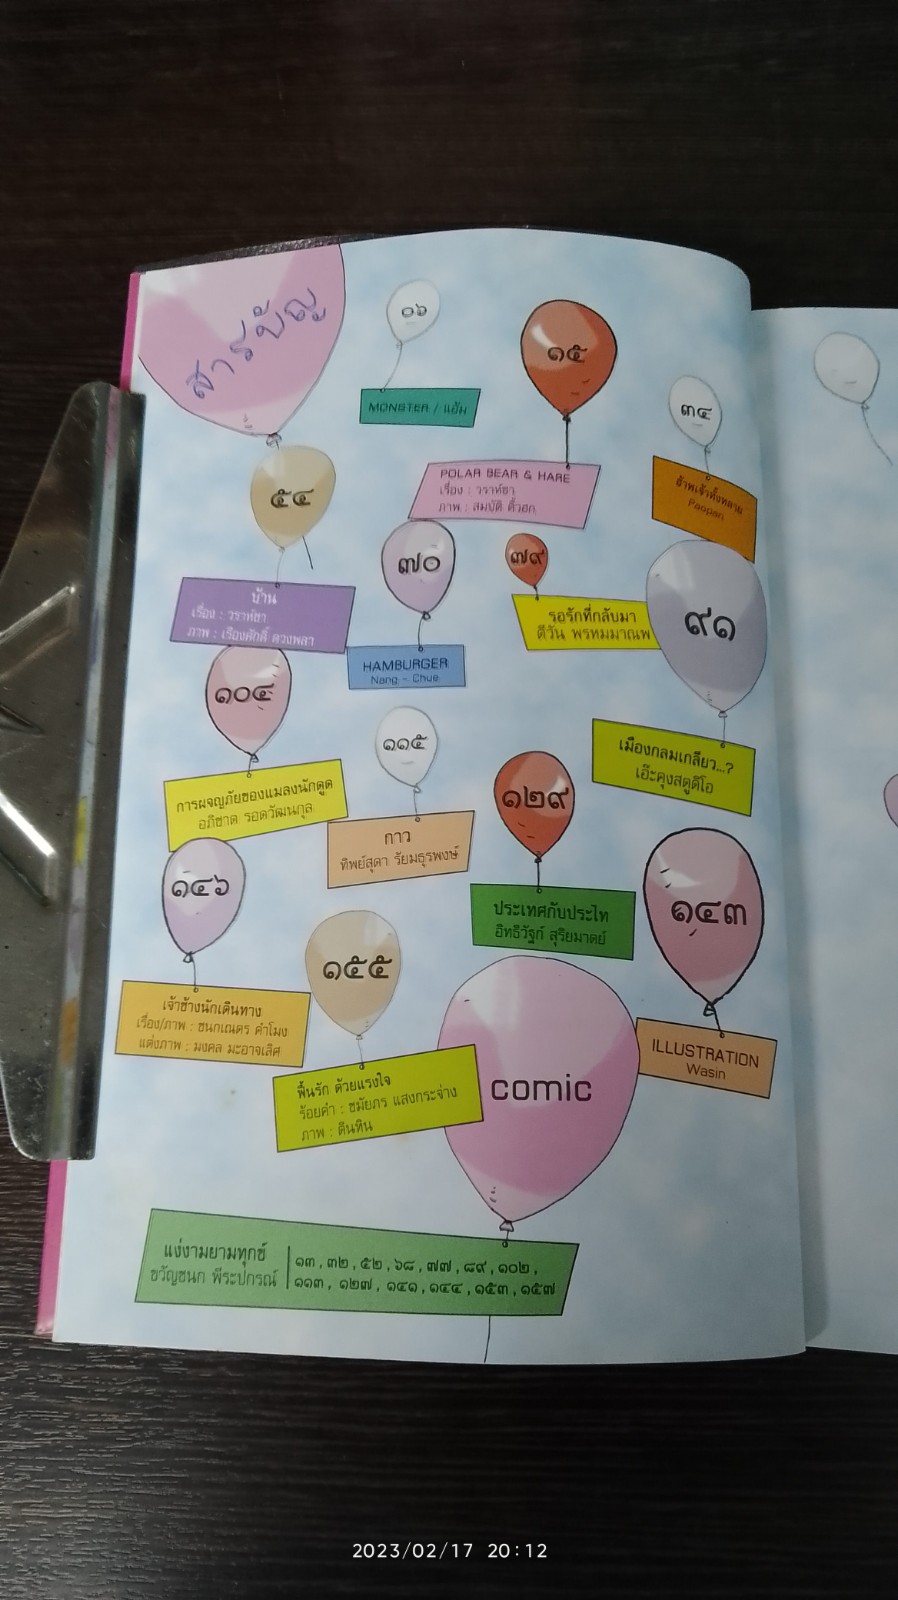 สารบัญ
๐๖
MONSTER / แอ้ม
๑๕
POLAR BEAR & HARE
เรื่อง : วราห์ชา
ภาพ : สมบัติ คิ้วฮก
๓๔
ข้าพเจ้าทั้งหลาย
Paopan
๕๔
บ้าน
เรื่อง : วราห์ชา
ภาพ : เรืองศักดิ์ ดวงพลา
๗๐
HAMBURGER
Nang - Chue
๗๙
รอรักที่กลับมา
ตีวัน พรหมมาณพ
๙๑
เมืองกลมเกลียว...?
เอ๊ะคุงสตูดิโอ
๑๐๔
การผจญภัยของแมลงนักดูด
อภิชาต รอดวัฒนกุล
๑๑๕
กาว
ทิพย์สุดา รัยมธุรพงษ์
๑๒๙
ประเทศกับประไท
อิทธิวัฐก์ สุริยมาตย์
๑๔๓
ILLUSTRATION
Wasin
๑๔๖
เจ้าช้างนักเดินทาง
เรื่อง/ภาพ : ชนกเนตร คำโมง
แต่งภาพ : มงคล มะอาจเลิศ
๑๕๕
ฟื้นรัก ด้วยแรงใจ
ร้อยคำ : ชมัยภร แสงกระจ่าง
ภาพ : ดินหิน
comic
แง่งามยามทุกข์
ขวัญชนก พีระปกรณ์
๑๓ , ๓๒ , ๕๒ , ๖๘ , ๗๗ , ๘๙ , ๑๐๒ ,
๑๑๓ , ๑๒๗ , ๑๔๑ , ๑๔๔ , ๑๕๓ , ๑๕๗
2023/02/17 20:12